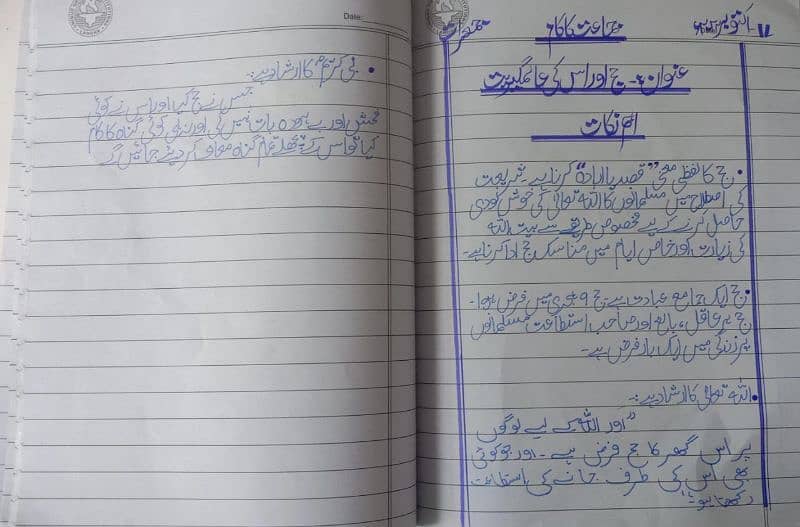 ۱۷ اکتوبر
جماعت کا کام
جمعرات
عنوان:- حج اور اس کی عالمگیریت
اہم نکات
• حج کا لفظی معنی "قصد یا ارادہ" کرنا ہے۔ شریعت
کی اصطلاح میں مسلمانوں کا اللہ تعالیٰ کی خوشنودی
حاصل کرنے کے لیے مخصوص طریقے سے بیت اللہ
کی زیارت اور خاص ایام میں مناسک حج ادا کرنا ہے۔
• حج ایک جامع عبادت ہے۔ حج ۹ ہجری میں فرض ہوا۔
حج ہر عاقل، بالغ اور صاحب استطاعت مسلمانوں
پر زندگی میں ایک بار فرض ہے۔
• اللہ تعالیٰ کا ارشاد ہے:-
"اور اللہ کے لیے لوگوں
پر اس گھر کا حج فرض ہے۔ اور جو کوئی
بھی اس کی طرف جانے کی استطاعت
رکھتا ہو۔"
Date:
• نبی کریم ﷺ کا ارشاد ہے:-
جس نے حج کیا اور اس نے کوئی
فحش اور بے ہودہ بات نہیں کی اور نہ ہی کوئی گناہ کا کام
کیا تو اس کے پچھلے تمام گناہ معاف کر دیئے جائیں گے